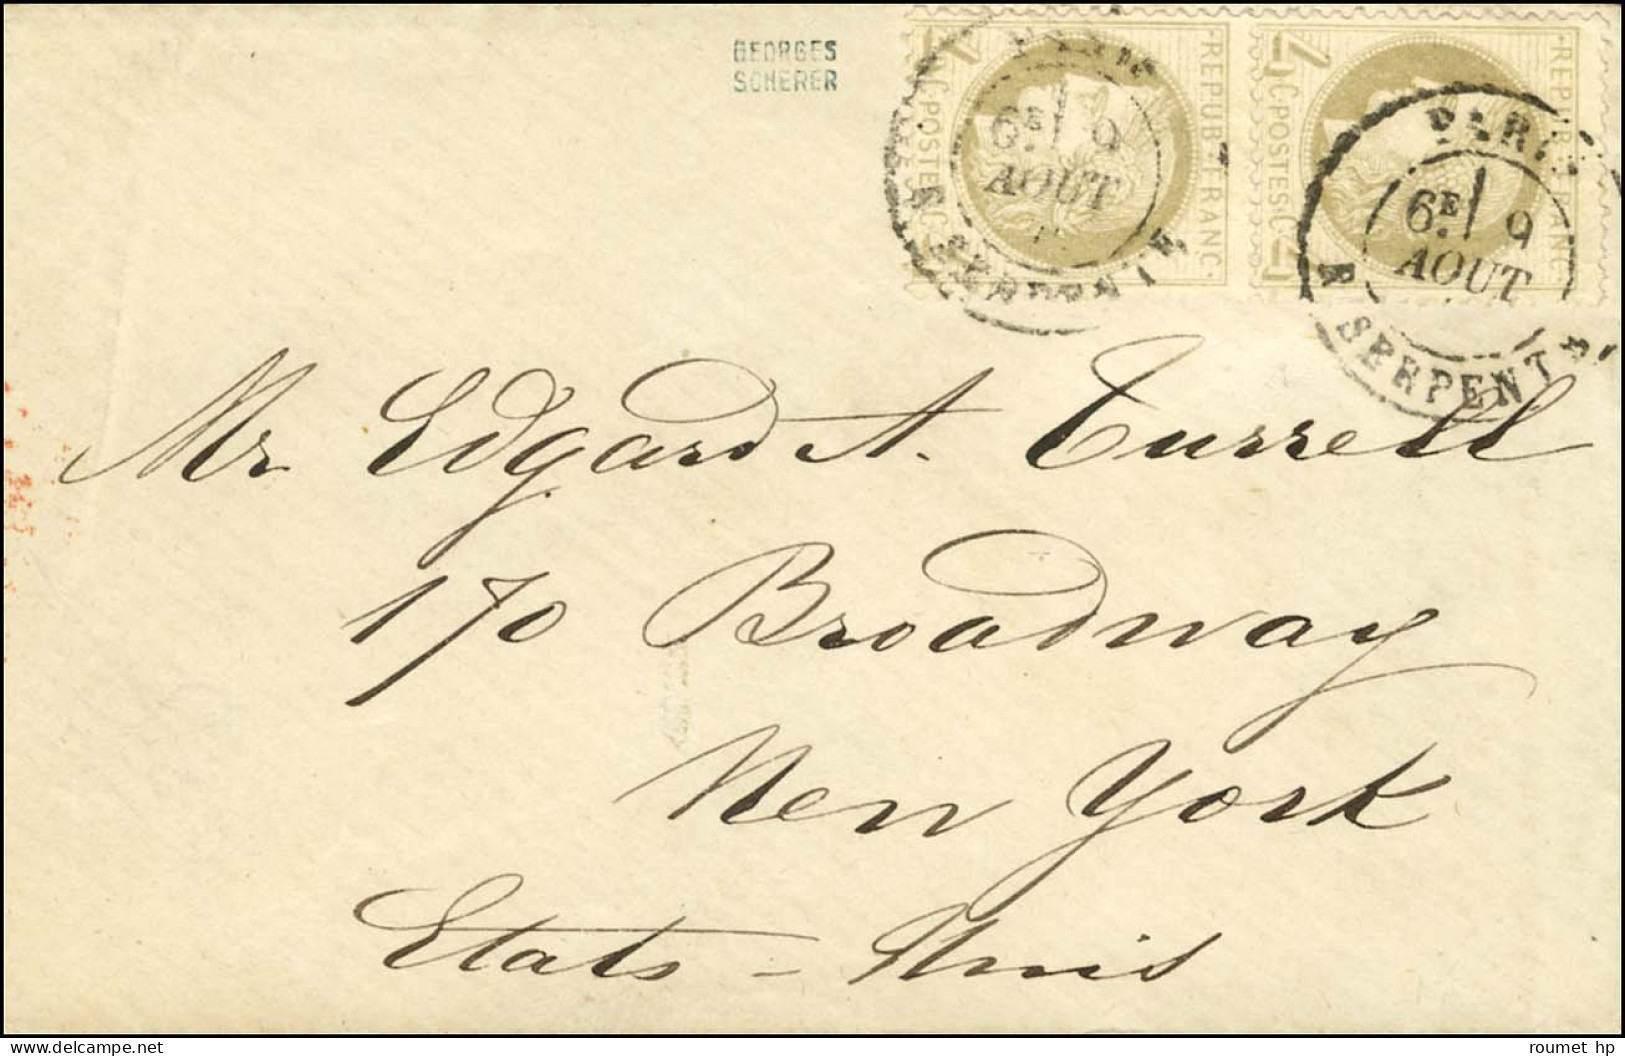 GEORGES
SCHERER
REPUB FRANC
4 C POSTES 4 C
REPUB FRANC
4 C POSTES 4 C
PARIS
6E 9
AOUT
R SERPENTE
PARIS
6E 9
AOUT
R SERPENTE
Mr Edgard A. Turrell
170 Broadway
New York
Etats-Unis
delcampe.net
roumet_hp